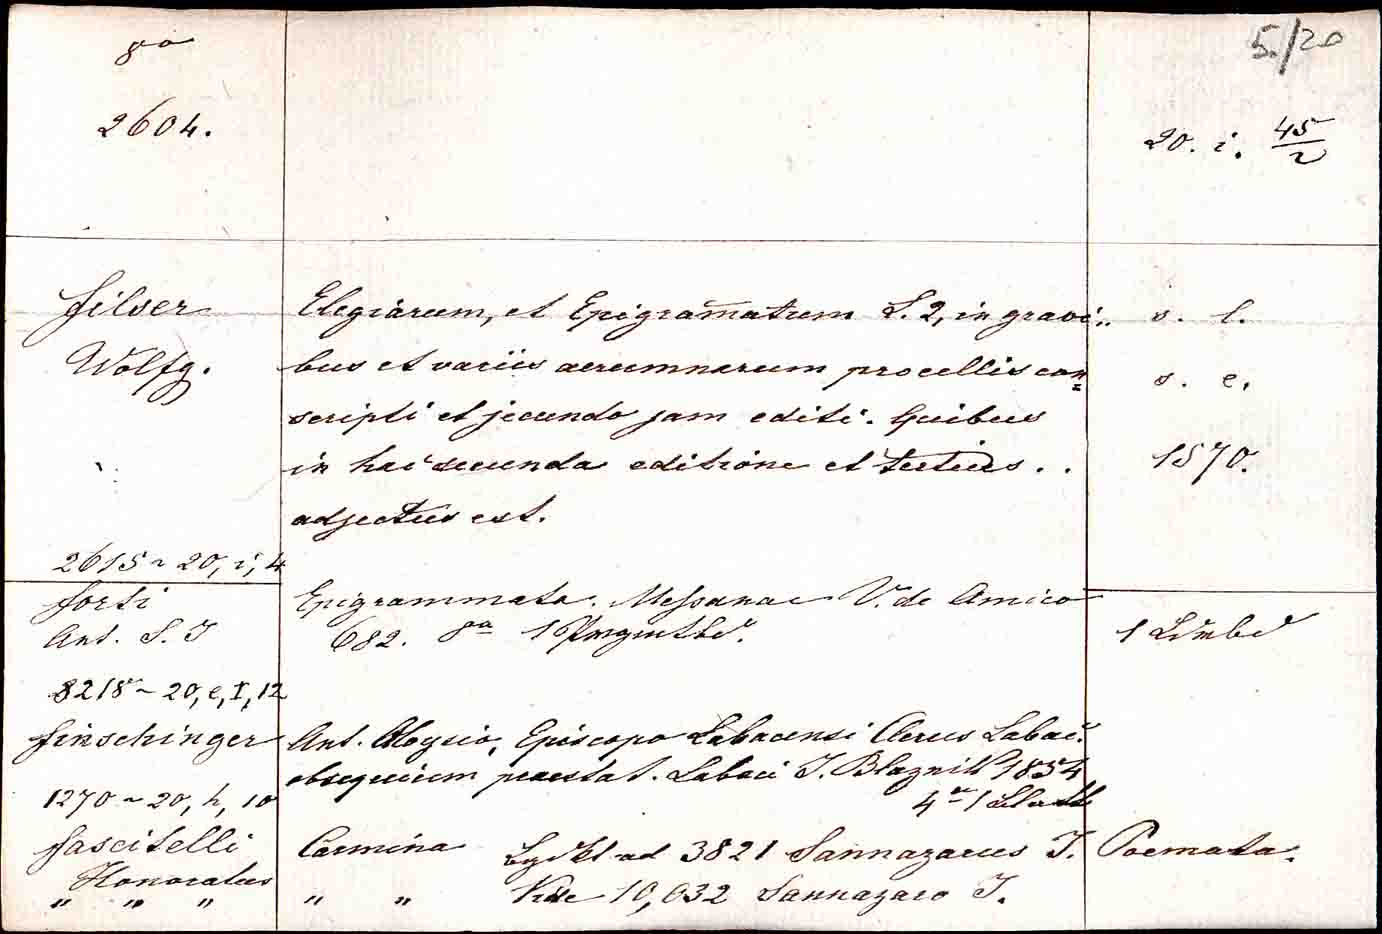 8vo
5./20
2604.
20. i. 45/2
Filser
Wolfg.
Elegiarum, et Epigram̄atum L. 2, in gravi„
bus et variis aerumnarum procellis con=
scripti et secundo jam editi. Quibus
in hac secunda editione et tertius . .
adjectus est.
s. l.
s. e.
1570.
2615 ~ 20, i, 4
Forti
Ant. S. J
Epigrammata. Messanae V. de Amico
682. 8vo 1
1
8218 ~ 20, e, I, 12
Finschinger
Ant. Aloysio, Episcopo Labacensi Clerus Labac.
obsequium praestat. Labaci J. Blaznik 1854
4o 1
1270 ~ 20, h, 10
Fascitelli
Honoratus
Carmina ad 3821 Sannazarus J. Poemata.
„ „ „ „ „ Vide 10,032 Sannazaro J.